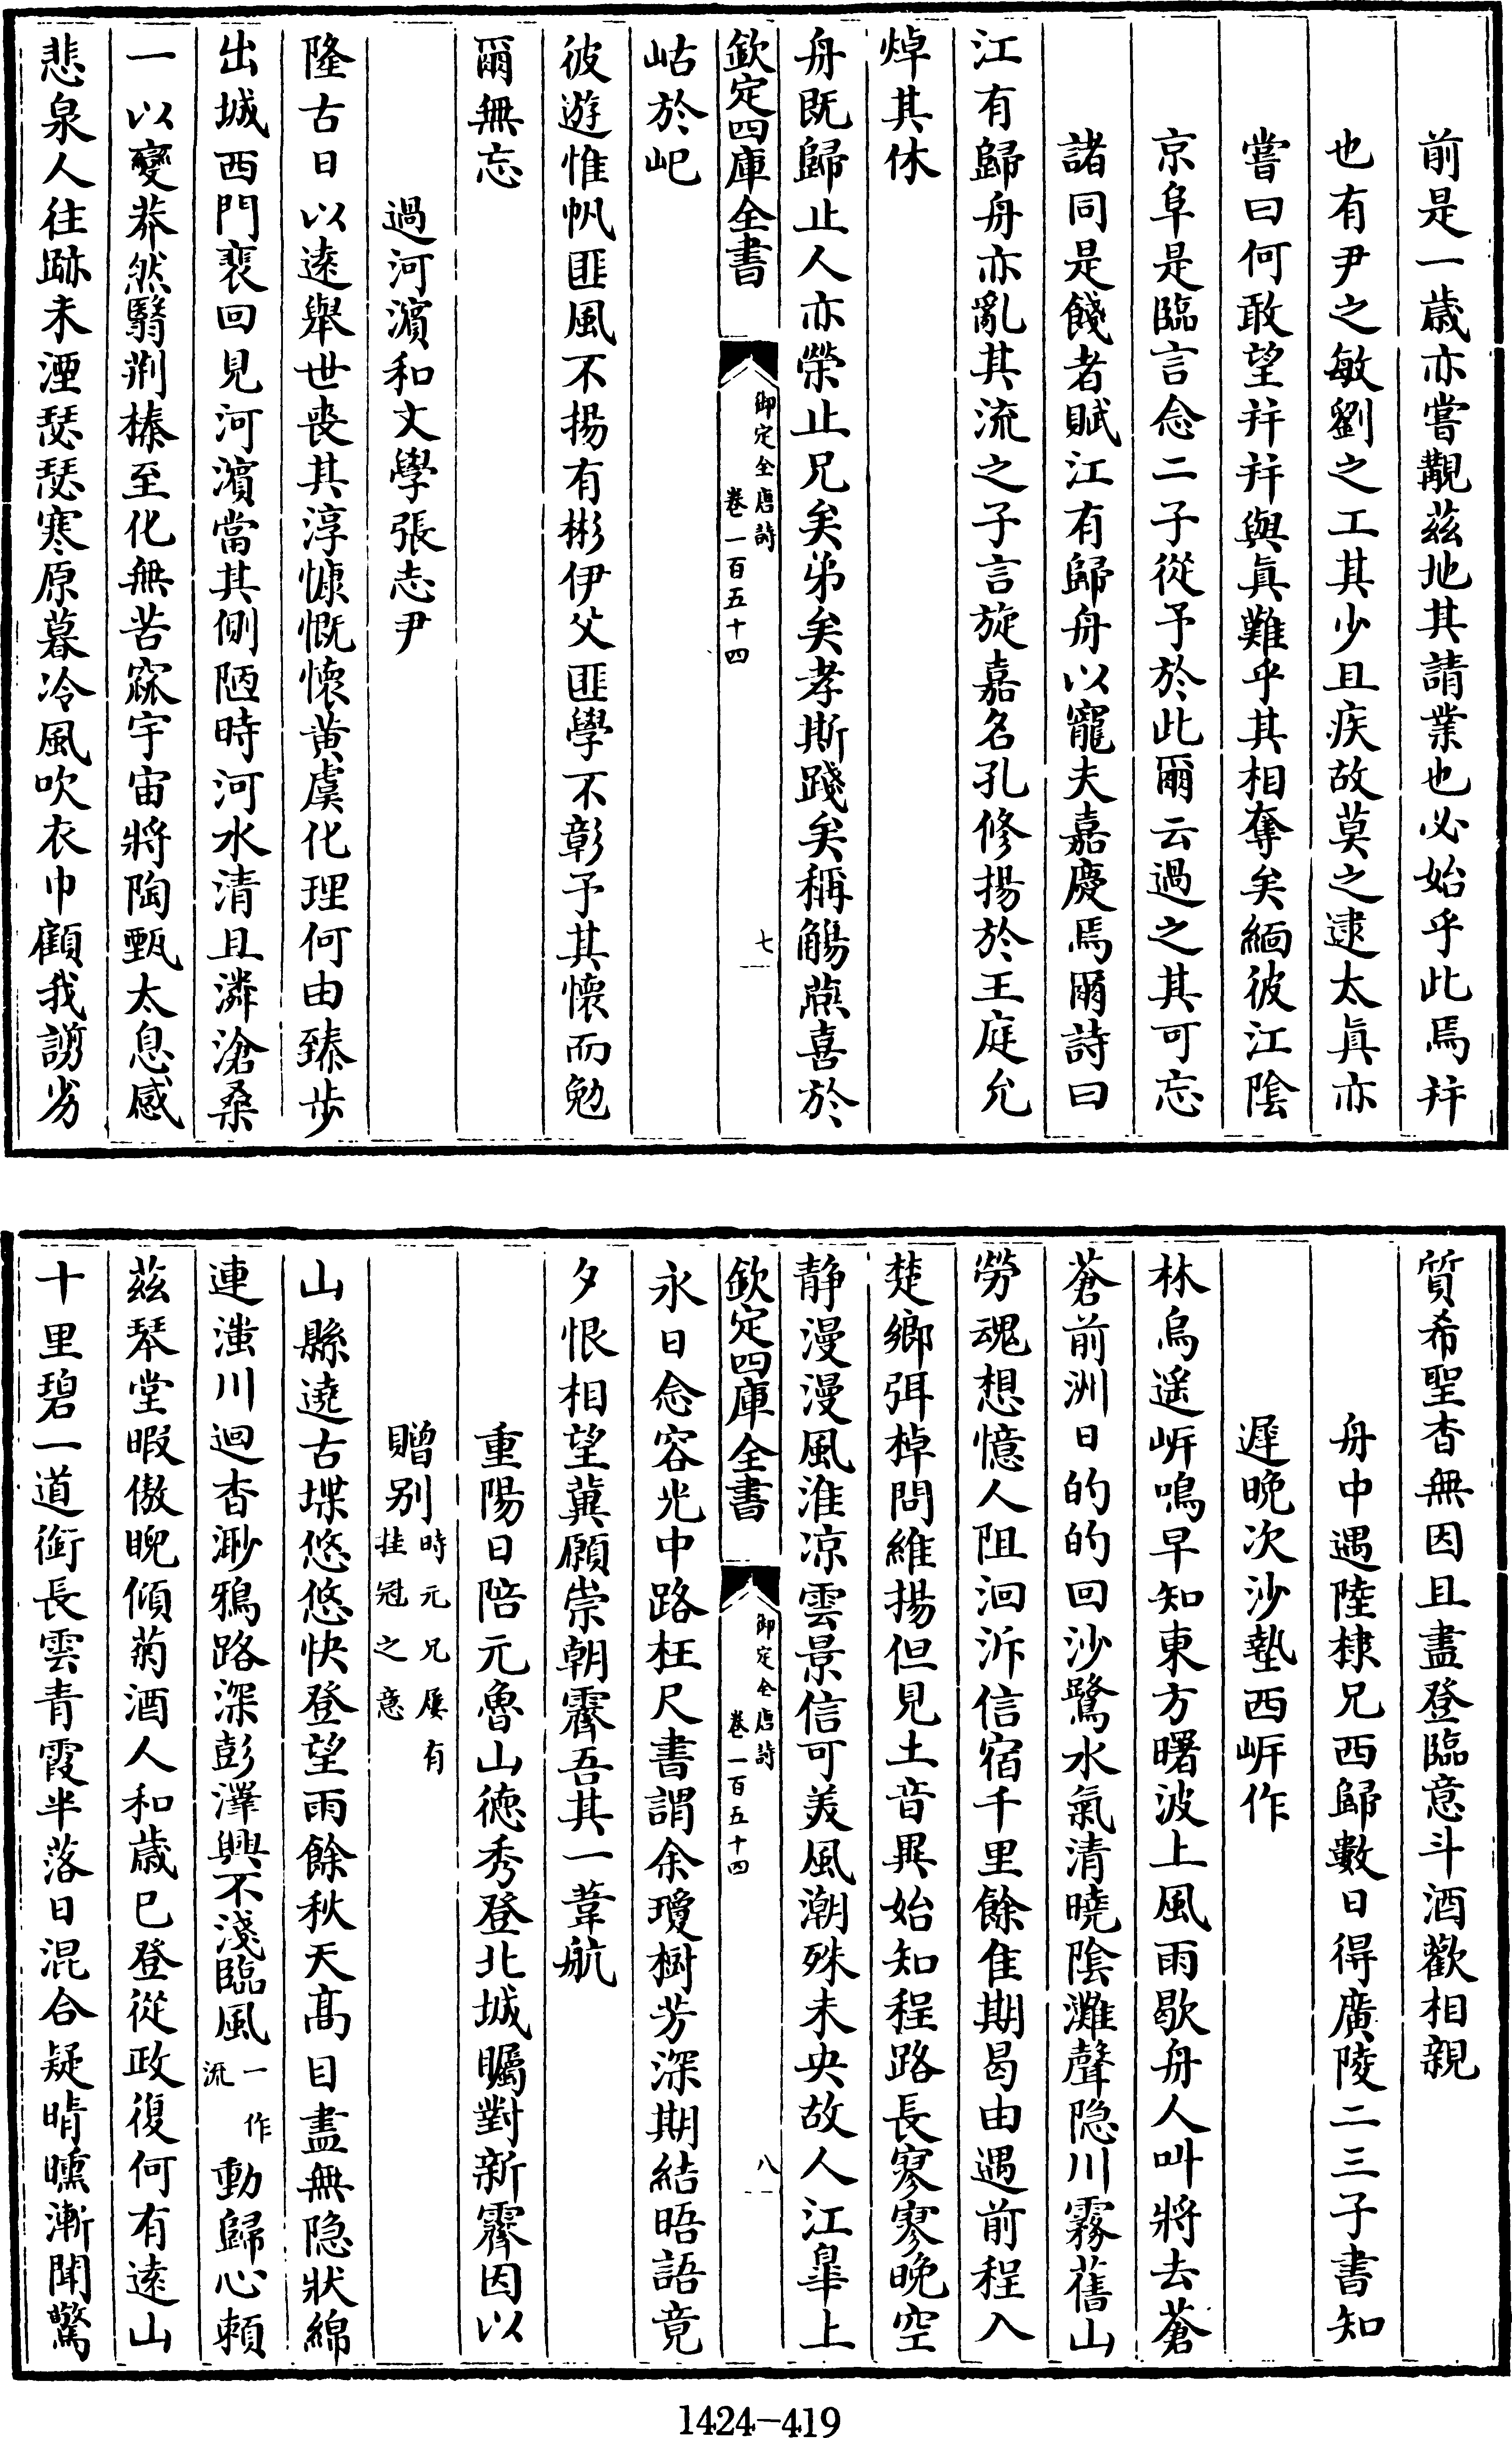 前是一歲亦嘗覯茲地其請業也必始乎此焉幷
也有尹之敏劉之工其少且疾故莫之逮太眞亦
嘗曰何敢望幷幷與眞難乎其相奪矣緬彼江陰
京阜是臨言念二子從予於此爾云過之其可忘
諸同是餞者賦江有歸舟以寵夫嘉慶焉爾詩曰
江有歸舟亦亂其流之子言旋嘉名孔修揚於王庭允
焯其休
舟既歸止人亦榮止兄矣弟矣孝斯踐矣稱觴燕喜於
欽定四庫全書
御定全唐詩
卷一百五十四
七
岵於屺
彼遊惟帆匪風不揚有彬伊父匪學不彰予其懷而勉
爾無忘
過河濱和文學張志尹
隆古日以遠舉世喪其淳慷慨懷黃虞化理何由臻步
出城西門裴回見河濱當其側陋時河水清且潾滄桑
一以變莽然翳荆榛至化無苦窳宇宙將陶甄太息感
悲泉人往跡未湮瑟瑟寒原暮冷風吹衣巾顧我謭劣
質希聖杳無因且盡登臨意斗酒歡相親
舟中遇陸棣兄西歸數日得廣陵二三子書知
遲晚次沙墊西岍作
林烏遥岍鳴早知東方曙波上風雨歇舟人叫將去蒼
蒼前洲日的的回沙鷺水氣清曉陰灘聲隐川霧舊山
勞魂想憶人阻洄泝信宿千里餘隹期曷由遇前程入
楚鄉弭棹問維揚但見土音異始知程路長寥寥晚空
静漫漫風淮凉雲景信可美風潮殊未央故人江臯上
欽定四庫全書
御定全唐詩
卷一百五十四
八
永日念容光中路枉尺書謂余瓊樹芳深期結晤語竟
夕恨相望冀願崇朝霽吾其一葦航
重陽日陪元魯山徳秀登北城矚對新霽因以
贈别時元兄屢有挂冠之意
山縣遶古堞悠悠快登望雨餘秋天高目盡無隐狀綿
連滍川迴杳渺鴉路深彭澤興不淺臨風一作流動歸心賴
茲琴堂暇傲睨傾菊酒人和歲已登從政復何有遠山
十里碧一道銜長雲青霞半落日混合疑晴曛漸聞驚
1424-419